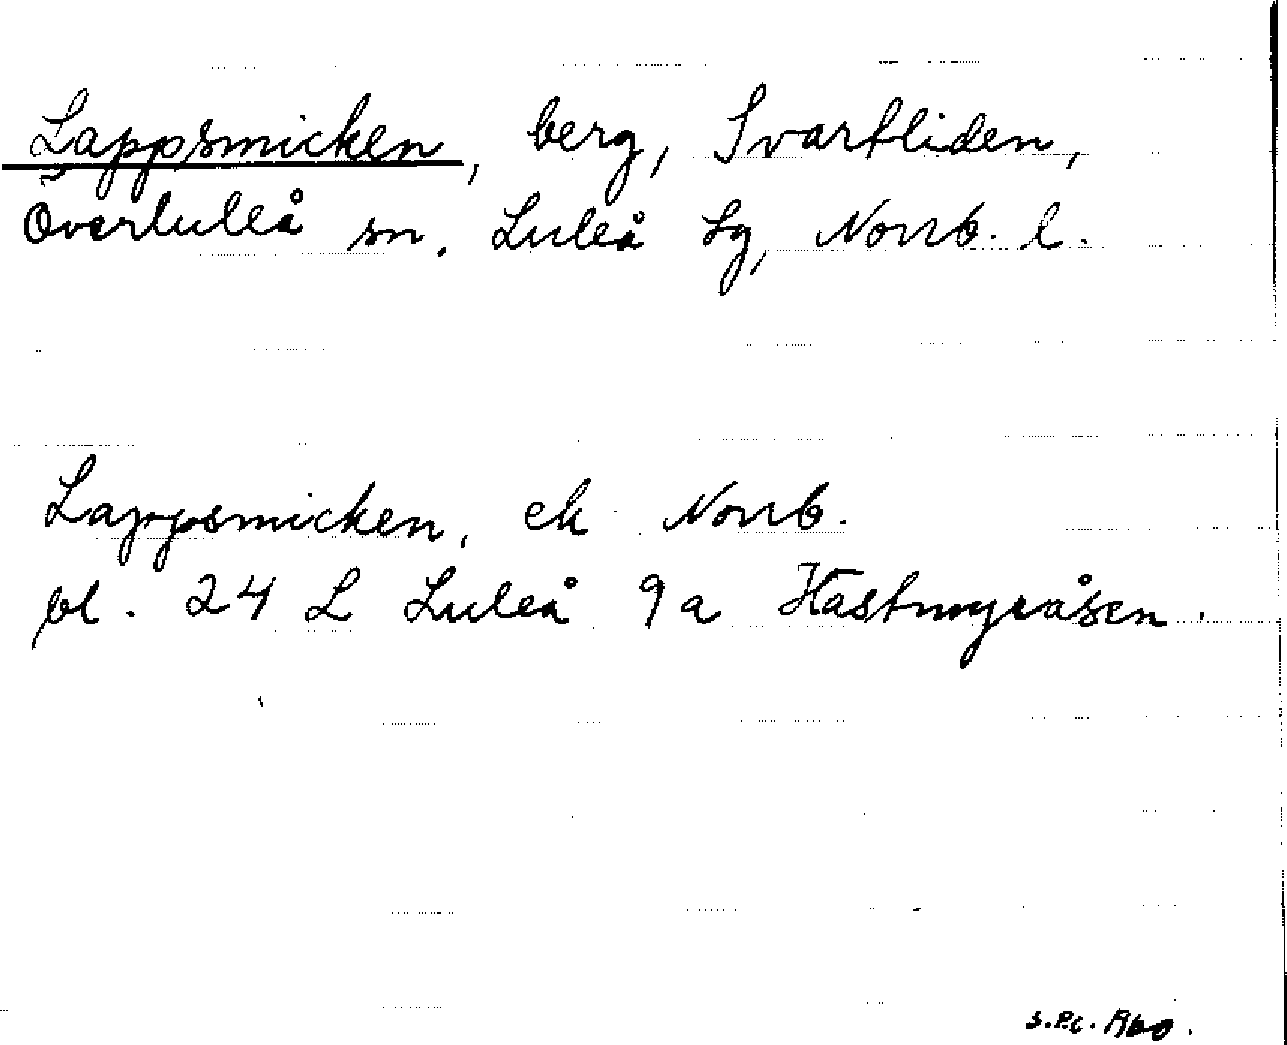 Lappsmicken, berg, Svartliden,
Överluleå sn. Luleå tg, Norrb. l.
Lappsmicken, ek Norrb.
bl. 24 L Luleå 9a Hästmyråsen.